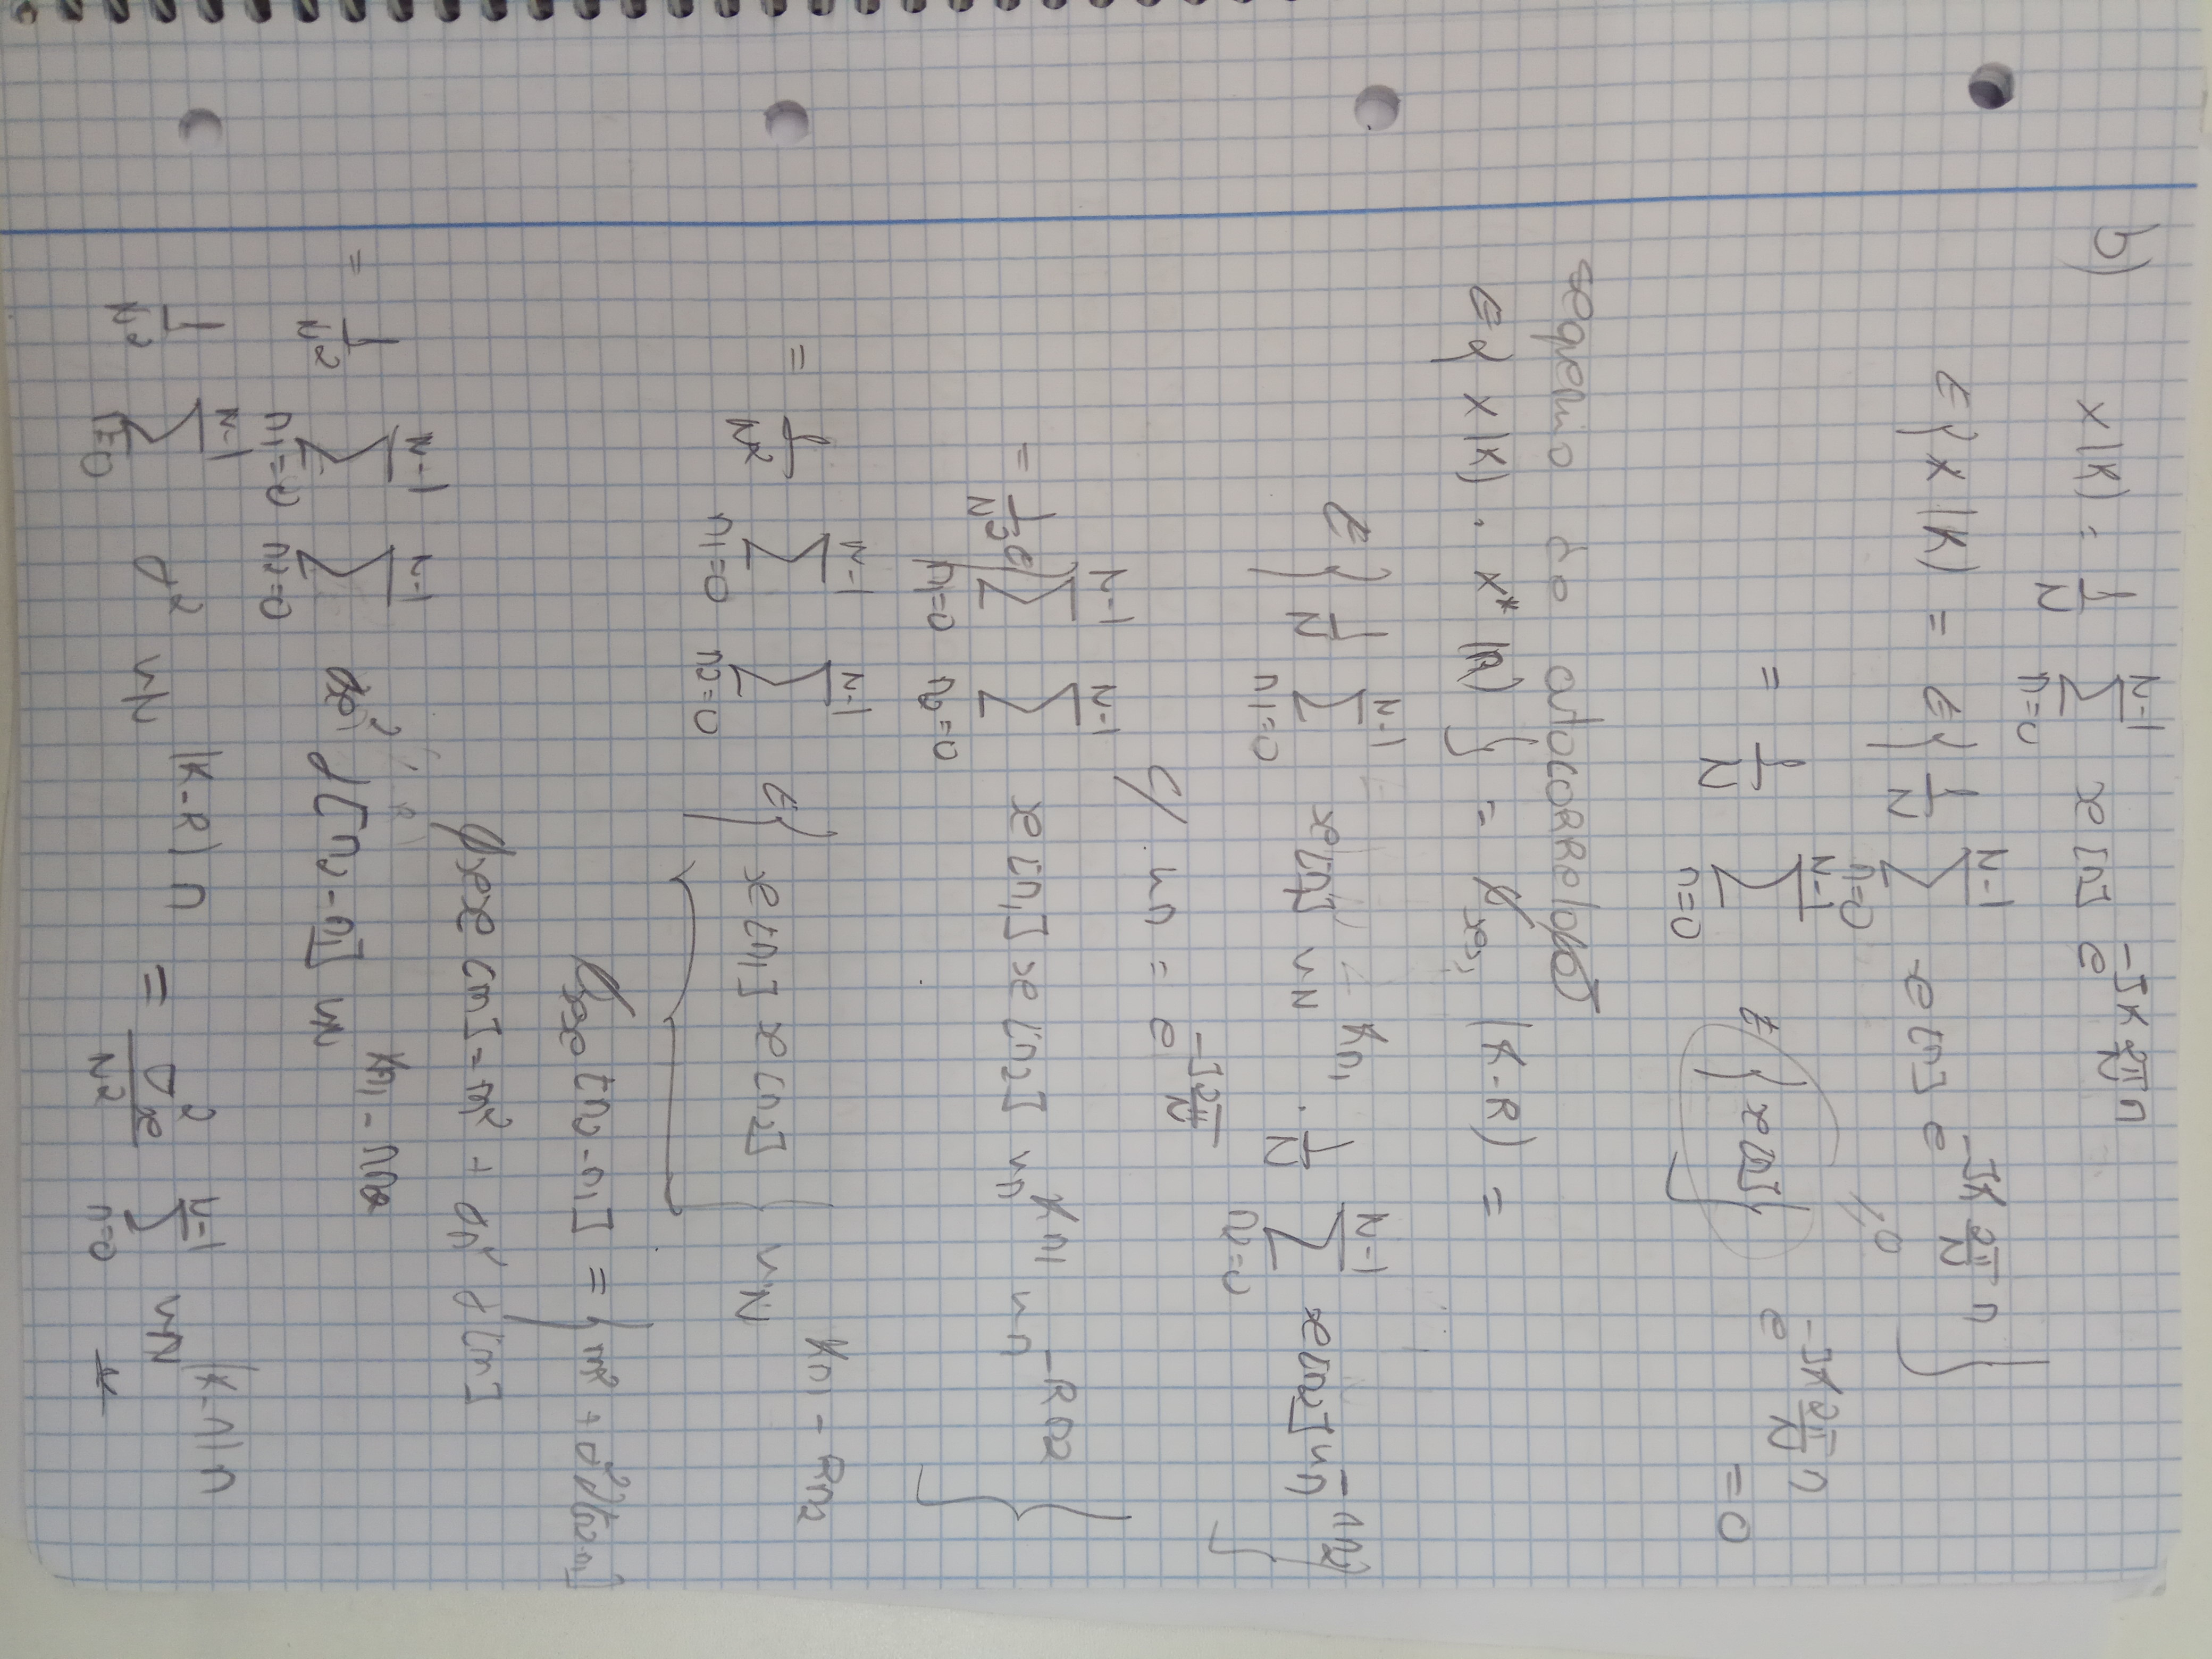 b) X(K) = 1/N ∑_{n=0}^{N-1} x[n] e^{-jK 2π/N n}
E{X(K) = E{ 1/N ∑_{n=0}^{N-1} x[n] e^{-jK 2π/N n} }
= 1/N ∑_{n=0}^{N-1} E{x[n]} e^{-jK 2π/N n} = 0
=0
E{ X(K) . X*(R) } = ϕ (K-R) =
E{ 1/N ∑_{n1=0}^{N-1} x[n1] W_N^{Kn1} . 1/N ∑_{n2=0}^{N-1} x[n2] W_N^{-rn2} }
c/ W_N = e^{-j 2π/N}
= 1/N² E{ ∑_{n1=0}^{N-1} ∑_{n2=0}^{N-1} x[n1] x[n2] W_N^{Kn1} W_N^{-Rn2} }
= 1/N² ∑_{n1=0}^{N-1} ∑_{n2=0}^{N-1} E{ x[n1] x[n2] } W_N^{Kn1 - Rn2}
ϕxx [n2-n1] = { m² + σ² δ[n2-n1]
ϕxx [m] = m² + σn² δ[m]
= 1/N² ∑_{n1=0}^{N-1} ∑_{n2=0}^{N-1} σx² δ[n2-n1] W_N^{Kn1 - rn2}
1/N² ∑_{n=0}^{N-1} σ² W_N^{(K-R)n} = σx²/N² ∑_{n=0}^{N-1} W_N^{(K-r)n}